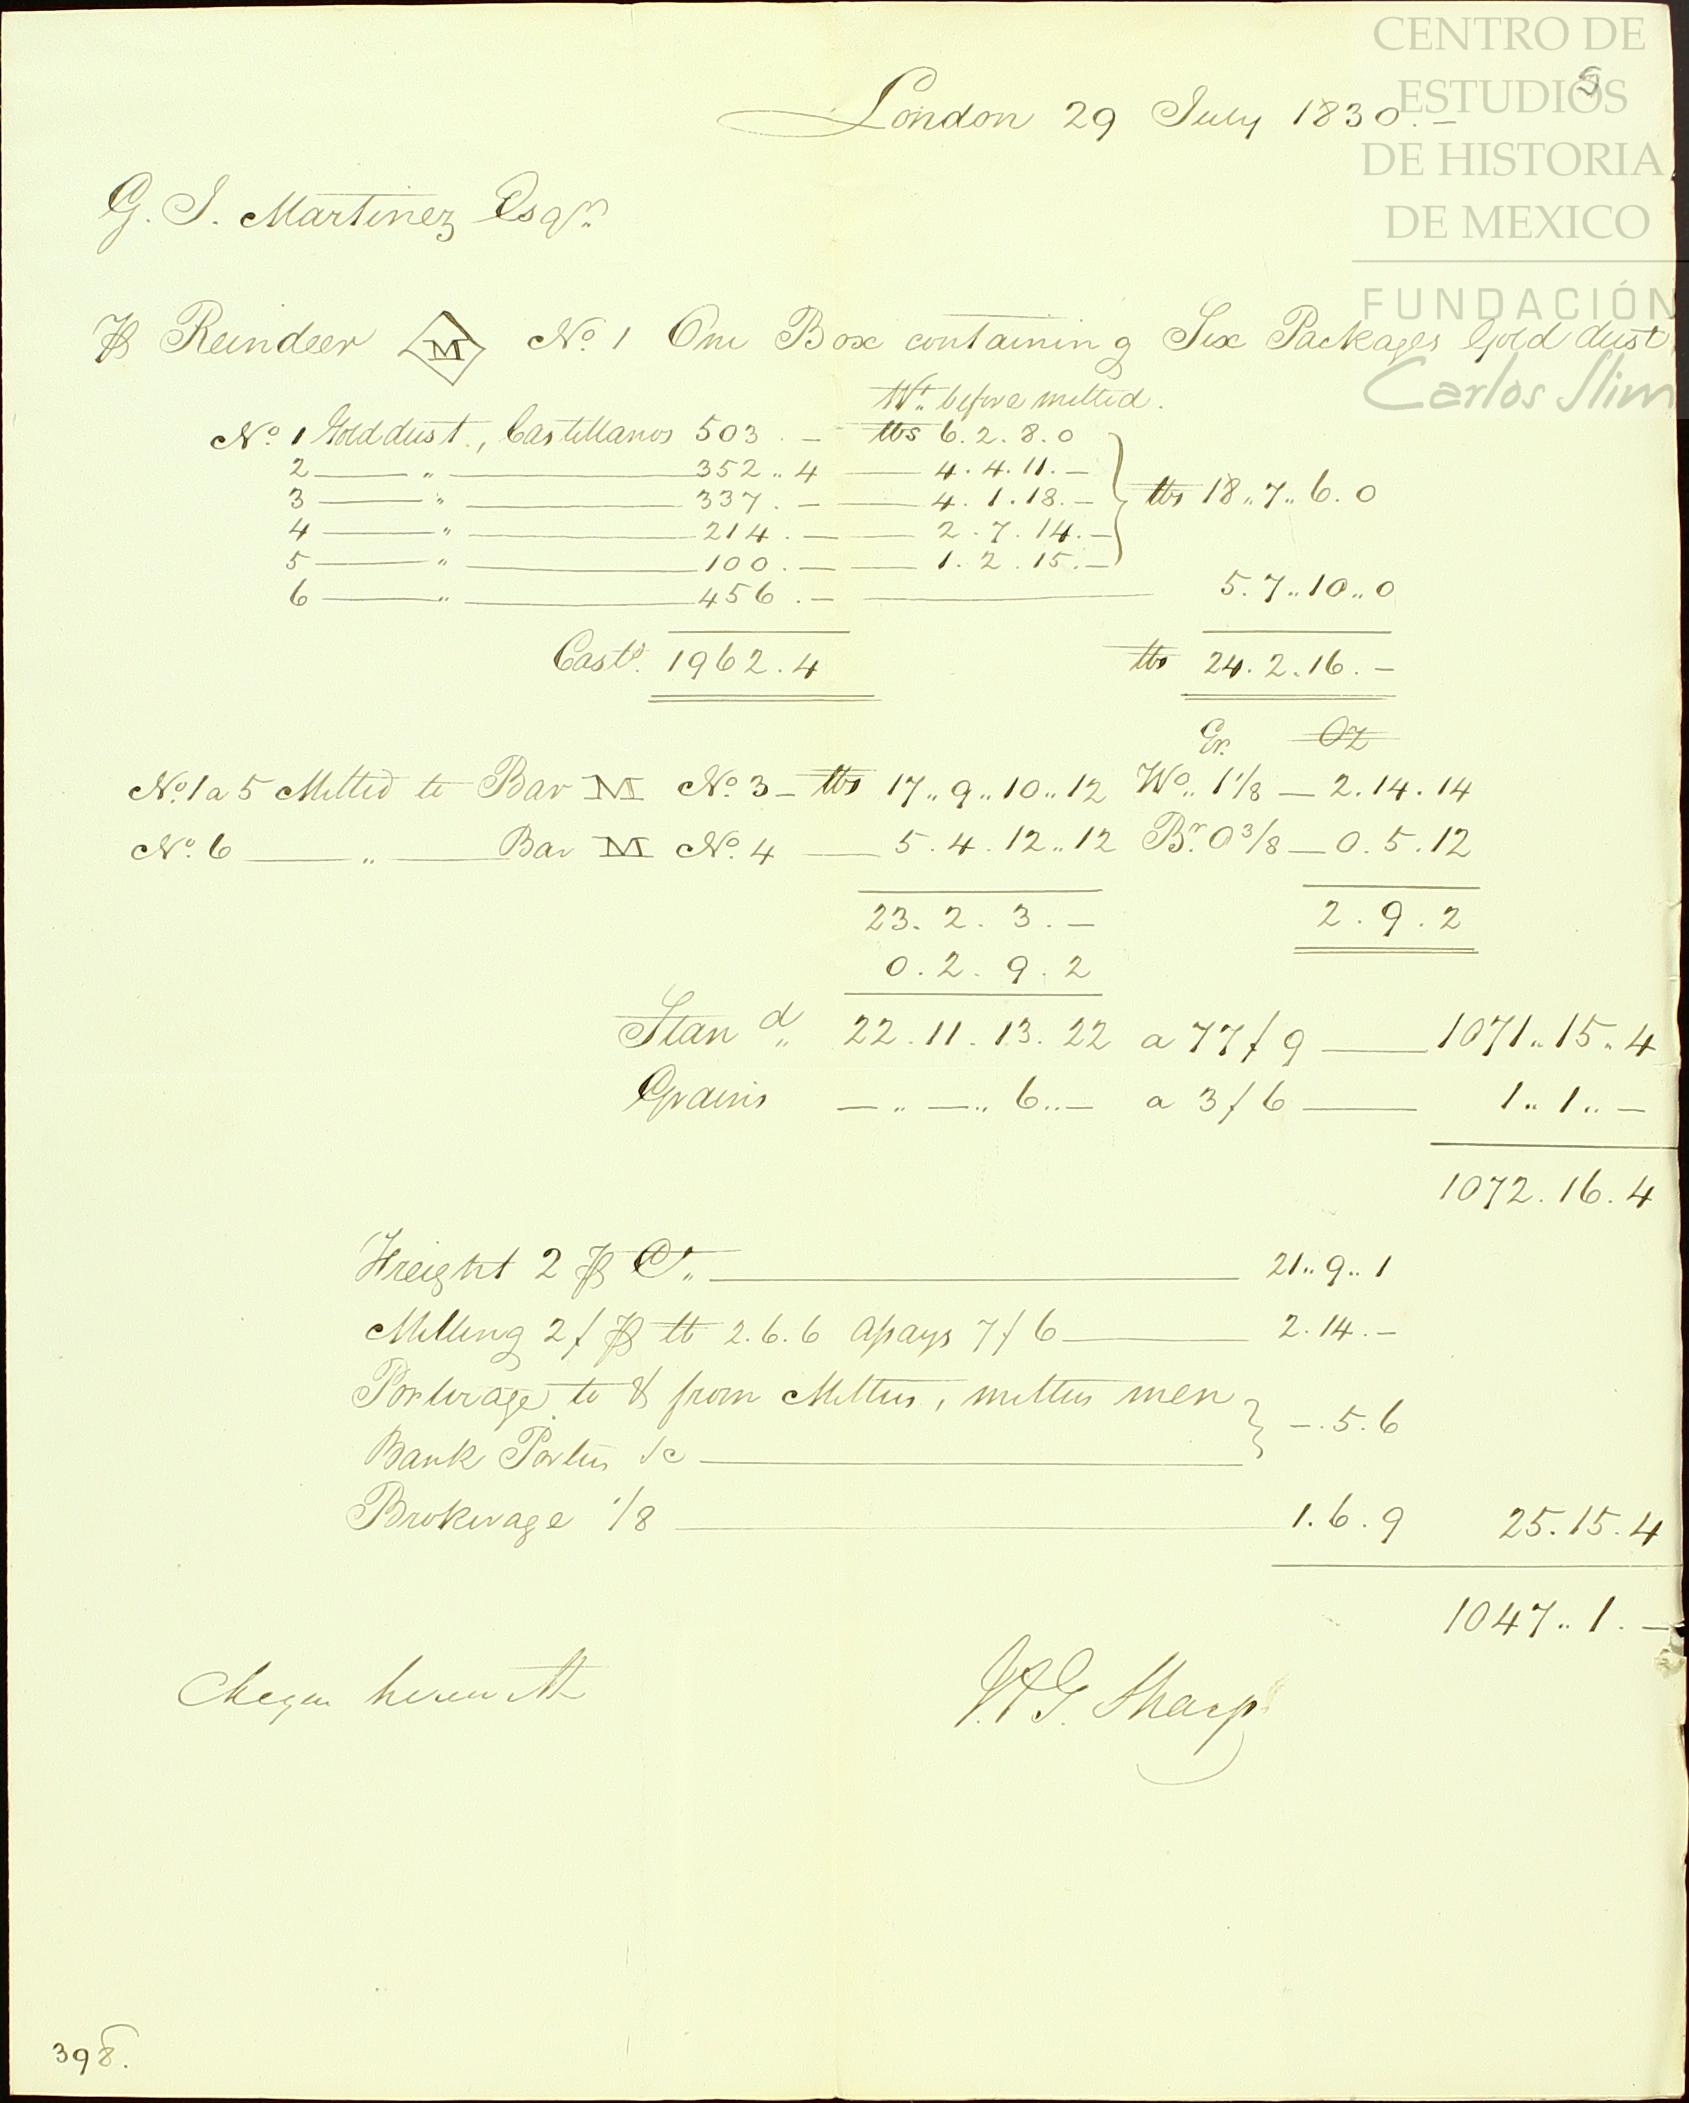 CENTRO DE
ESTUDIOS
DE HISTORIA
DE MEXICO
FUNDACIÓN
Carlos Slim
5
London 29 July 1830.—
G. J. Martinez Esqr.
⅌ Reindeer M No. 1 One Box containing Six Packages Gold dust
Wt. before melted.
No. 1 Gold dust, Castellanos 503.— lbs 6.2.8.0
2 — " — 352..4 — 4.4.11.—
3 — " — 337.— — 4.1.18.— } lbs 18..7..6.0
4 — " — 214.— — 2.7.14.—
5 — " — 100.— — 1.2.15.—
6 — " — 456.— — 5.7..10..0
Casts. 1962.4 lbs 24.2.16.—
Gr. Oz
No. 1 a 5 Melted to Bar M No. 3 — lbs 17..9..10..12 Wo.. 1 1/8 — 2.14.14
No. 6 — " — Bar M No. 4 — 5.4.12..12 Br. 0 3/8 — 0.5.12
23.2.3.— 2.9.2
0.2.9.2
Stand.. 22.11.13.22 a 77/9 — 1071..15..4
Grains —..—..6..— a 3/6 — 1..1..—
1072.16.4
Freight 2 ⅌ Ct. — 21..9..1
Melting 2/ ⅌ lb 2.6.6 Assays 7/6 — 2.14.—
Porterage to & from Melters, melters men } —.5.6
Bank Porters &c —
Brokerage 1/8 — 1.6.9 25.15.4
1047..1.—
Cheque herewith
Sharp
398.